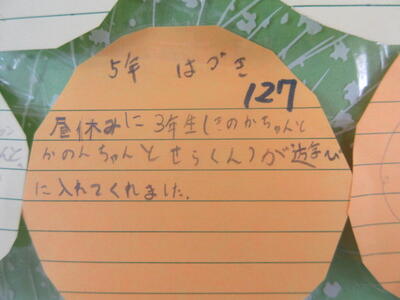 5年 はづき
127
昼休みに3年生(きのかちゃんと
かのんちゃんとせらくん)が遊び
に入れてくれました。